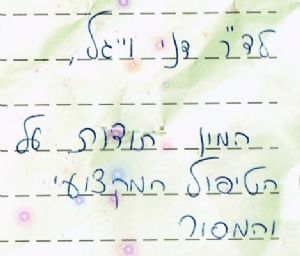 לד"ר דני וייגל,
המון תודות על
הטיפול המקצועי
והמסור